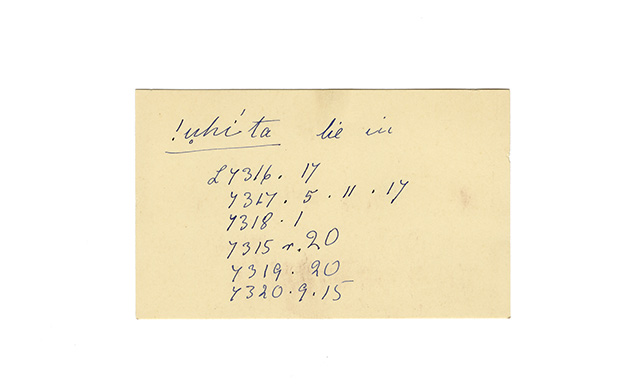 !ụhí'ta lie in
L 7316. 17
7317. 5. 11. 17
7318. 1
7315 r. 20
7319. 20
7320. 9. 15